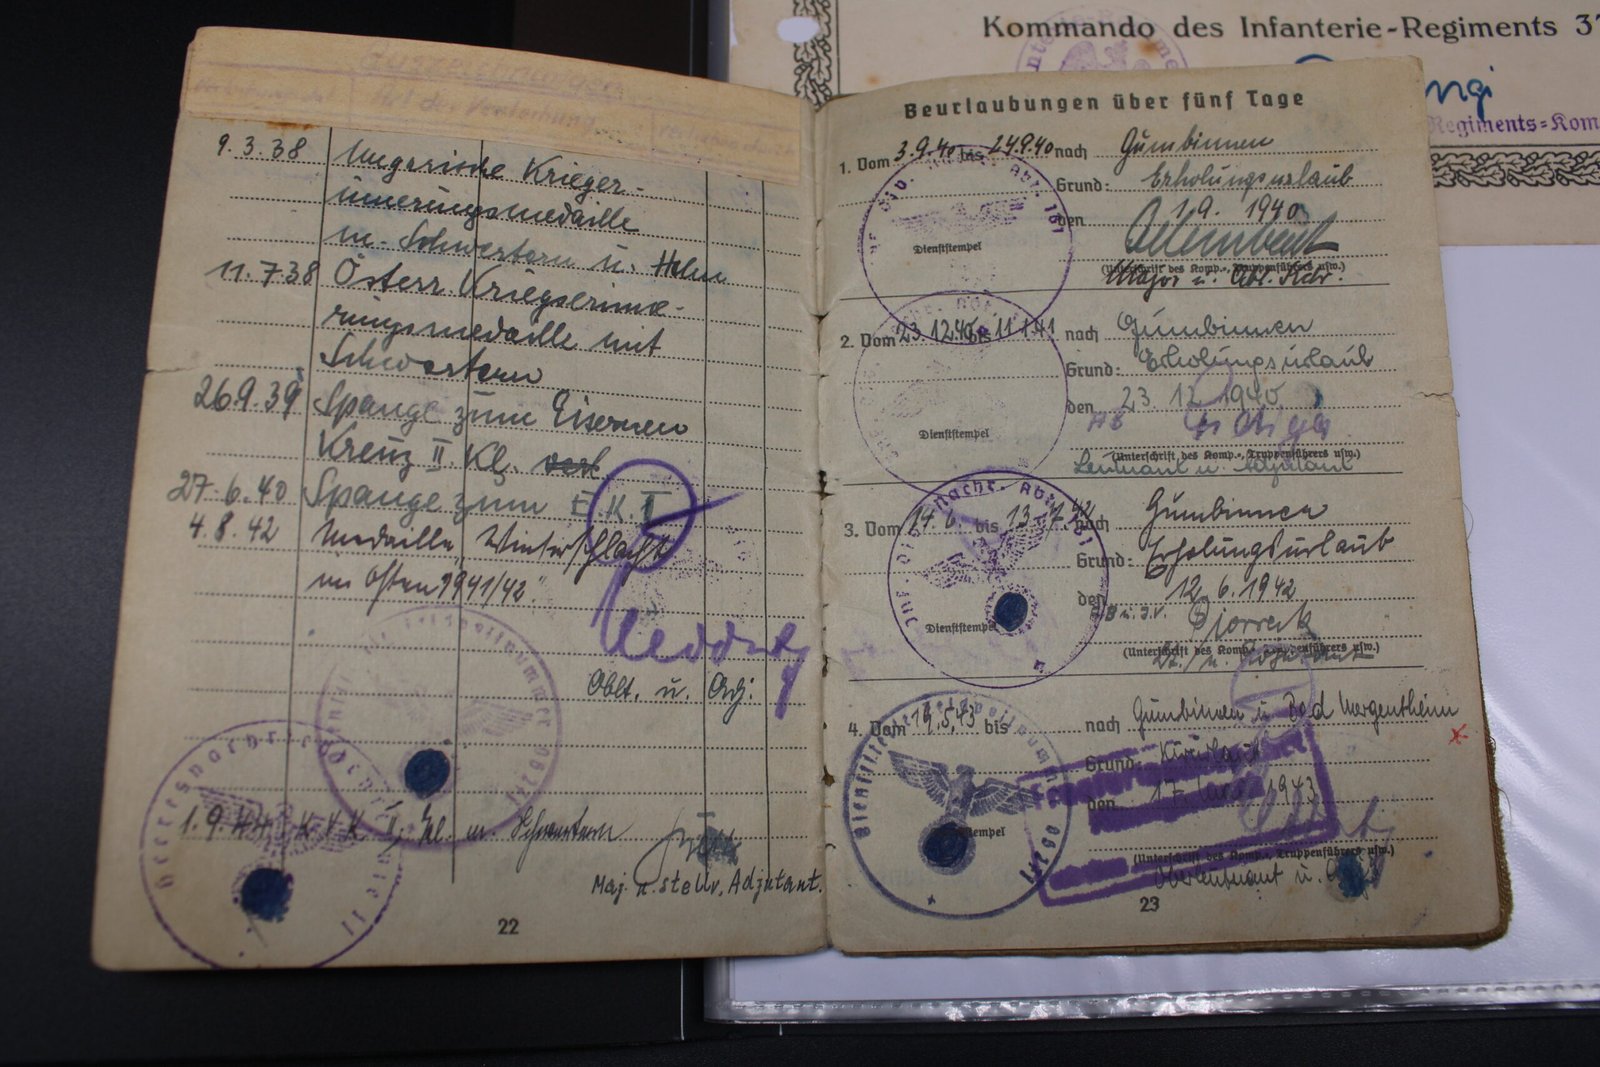 Kommando des Infanterie-Regiments 37
Regiments=Kom
Auszeichnungen
Art der Verleihung
9.3.38 Ungarische Krieger-
innerungsmedaille
m. Schwertern u. Helm
11.7.38 Österr. Kriegserinne-
rungsmedaille mit
Schwertern
26.9.39 Spange zum Eisernen
Kreuz II. Kl.
27.6.40 Spange zum E.K.I
4.8.42 Medaille „Winterschlacht
im Osten 1941/42"
Oblt. u. Adj.
1.9.44 K.V.K. II. Kl. m. Schwertern
Maj. u. stellv. Adjutant.
22
Beurlaubungen über fünf Tage
1. Vom 3.9.40 bis 24.9.40 nach Gumbinnen
Grund: Erholungsurlaub
den 1.9. 1940
Dienststempel
(Unterschrift des Komp.-, Truppenführers usw.)
Major u. Abt. Kdr.
2. Vom 23.12.40 bis 11.1.41 nach Gumbinnen
Grund: Erholungsurlaub
den 23.12.1940
Dienststempel
(Unterschrift des Komp.-, Truppenführers usw.)
Leutnant u. Adjutant
3. Vom 14.6. bis 13.7.42 nach Gumbinnen
Grund: Erholungsurlaub
den 12.6.1942
Dienststempel
(Unterschrift des Komp.-, Truppenführers usw.)
4. Vom 19.5.43 bis nach Gumbinnen u. Bad Mergentheim
Grund: Kururlaub
den 17. 1943
(Unterschrift des Komp.-, Truppenführers usw.)
Oberleutnant u.
23